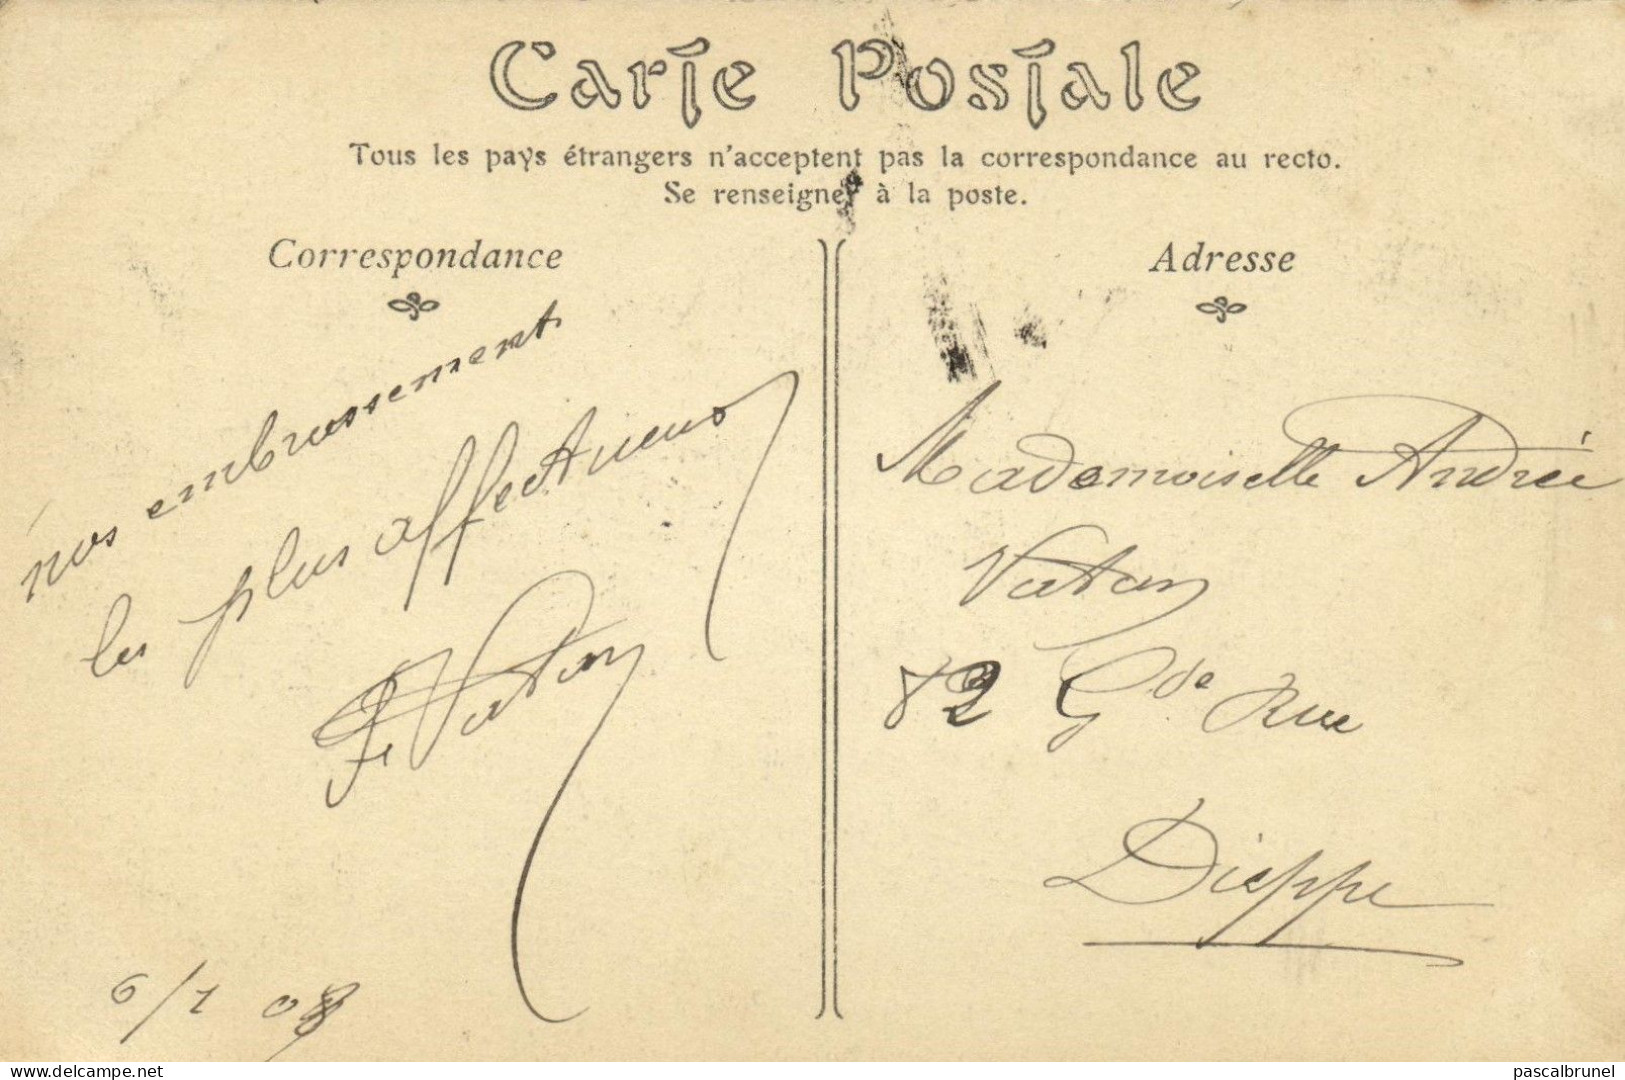 Carte Postale
Tous les pays étrangers n'acceptent pas la correspondance au recto.
Se renseigner à la poste.
Correspondance
nos embrassement
les plus affectueux
F. Vatan
6/1 08
Adresse
Mademoiselle Andrée
Vatan
82 Gde Rue
Dieppe
www.delcampe.net
pascalbrunel